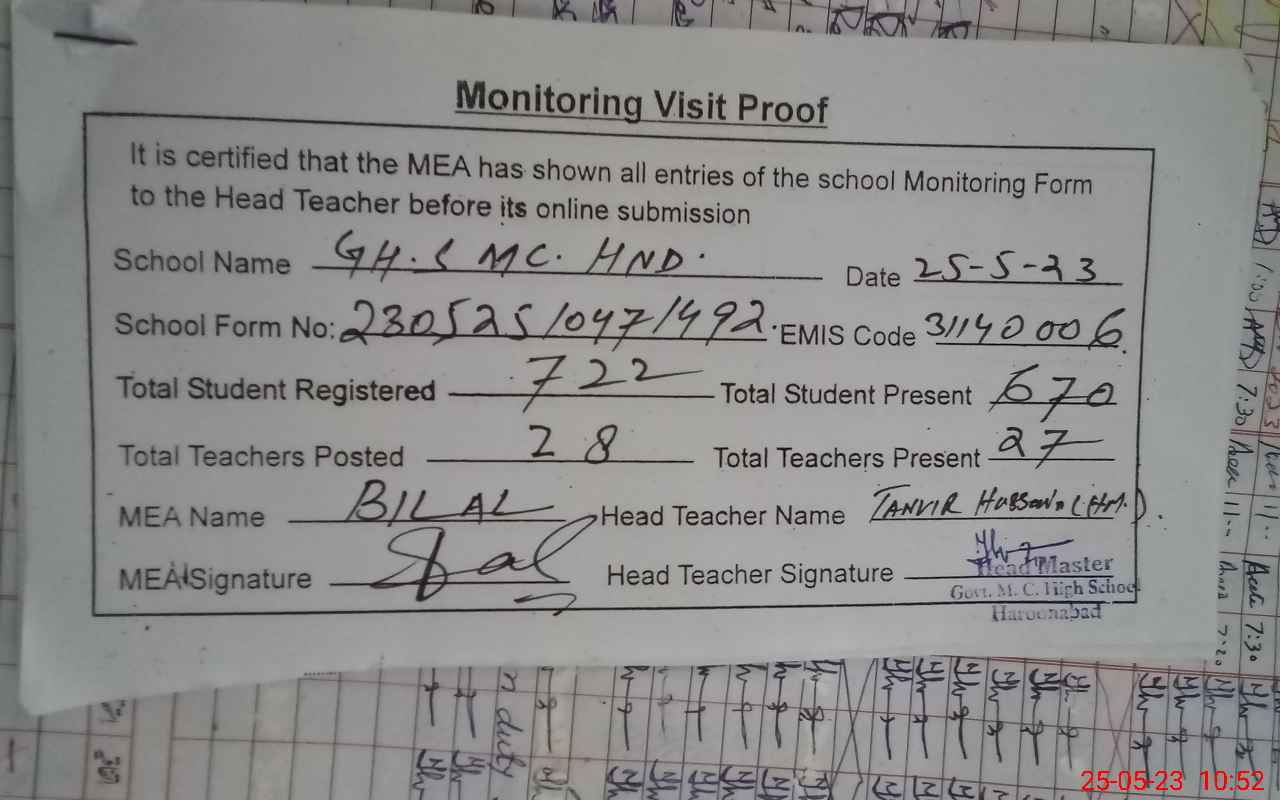 Monitoring Visit Proof
It is certified that the MEA has shown all entries of the school Monitoring Form
to the Head Teacher before its online submission
School Name GH.S MC. HND. Date 25-5-23
School Form No: 230525/047/492. EMIS Code 31140006
Total Student Registered 722 Total Student Present 670
Total Teachers Posted 28 Total Teachers Present 27
MEA Name BILAL Head Teacher Name TANVIR Hussain (HM.)
MEA Signature Head Teacher Signature
Head Master
Govt. M. C. High School
Haroonabad
n duty
7:30
7:30
7:20
25-05-23 10:52